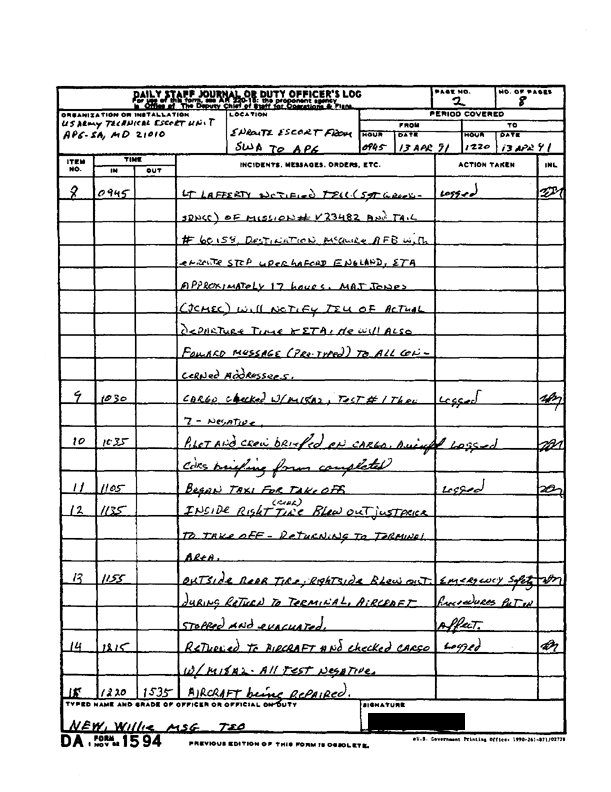 DAILY STAFF JOURNAL OR DUTY OFFICER'S LOG
For use of this form, see AR 220-15; the proponent agency
is Office of The Deputy Chief of Staff for Operations & Plans.
PAGE NO.
2
NO. OF PAGES
8
ORGANIZATION OR INSTALLATION
US ARMY TECHNICAL ESCORT UNIT
APG-SA, MD 21010
LOCATION
ENROUTE ESCORT FROM
SWA TO APG
PERIOD COVERED
FROM TO
HOUR DATE HOUR DATE
0945 13 APR 91 1220 13 APR 91
ITEM NO. TIME IN OUT INCIDENTS, MESSAGES, ORDERS, ETC. ACTION TAKEN INL
8 0945 LT LAFFERTY NOTIFIED TEU (SGT
) OF MISSION # V23482 AND TAIL
# 60159, DESTINATION MCGUIRE AFB with
enroute STOP UPPER HAFORD ENGLAND, ETA
APPROXIMATELY 17 hours. MAJ JONES
(JCMEC) will NOTIFY TEU OF ACTUAL
DEPARTURE TIME & ETA; He will ALSO
FOWARD MESSAGE (PRE-TYPED) TO ALL CON-
CERNED ADDRESSEES.
Logged
9 1030 CARGO checked W/M18A2, TEST #1 THRU
7 - NEGATIVE.
Logged
10 1035 PILOT AND CREW BRIEFED ON CARGO.
CDRS briefing form completed
Logged
11 1105 BEGAN TAXI FOR TAKE OFF Logged
12 1135 INSIDE RIGHT (REAR) TIRE BLEW OUT JUST PRIOR
TO TAKE OFF - RETURNING TO TERMINAL
AREA.
13 1155 OUTSIDE REAR TIRE, RIGHTSIDE BLEW OUT
DURING RETURN TO TERMINAL. AIRCRAFT
STOPPED AND EVACUATED.
EMERGENCY Safety
PROCEDURES PUT IN
AFFECT.
14 1215 RETURNED TO AIRCRAFT AND checked CARGO
W/M18A2 - ALL TEST NEGATIVE.
Logged
15 1220 1535 AIRCRAFT being REPAIRED.
TYPED NAME AND GRADE OF OFFICER OR OFFICIAL ON DUTY
NEW, Willie MSG TEO
SIGNATURE
DA FORM 1 NOV 62 1594
PREVIOUS EDITION OF THIS FORM IS OBSOLETE.
U.S. Government Printing Office: 1990-261-871/02728